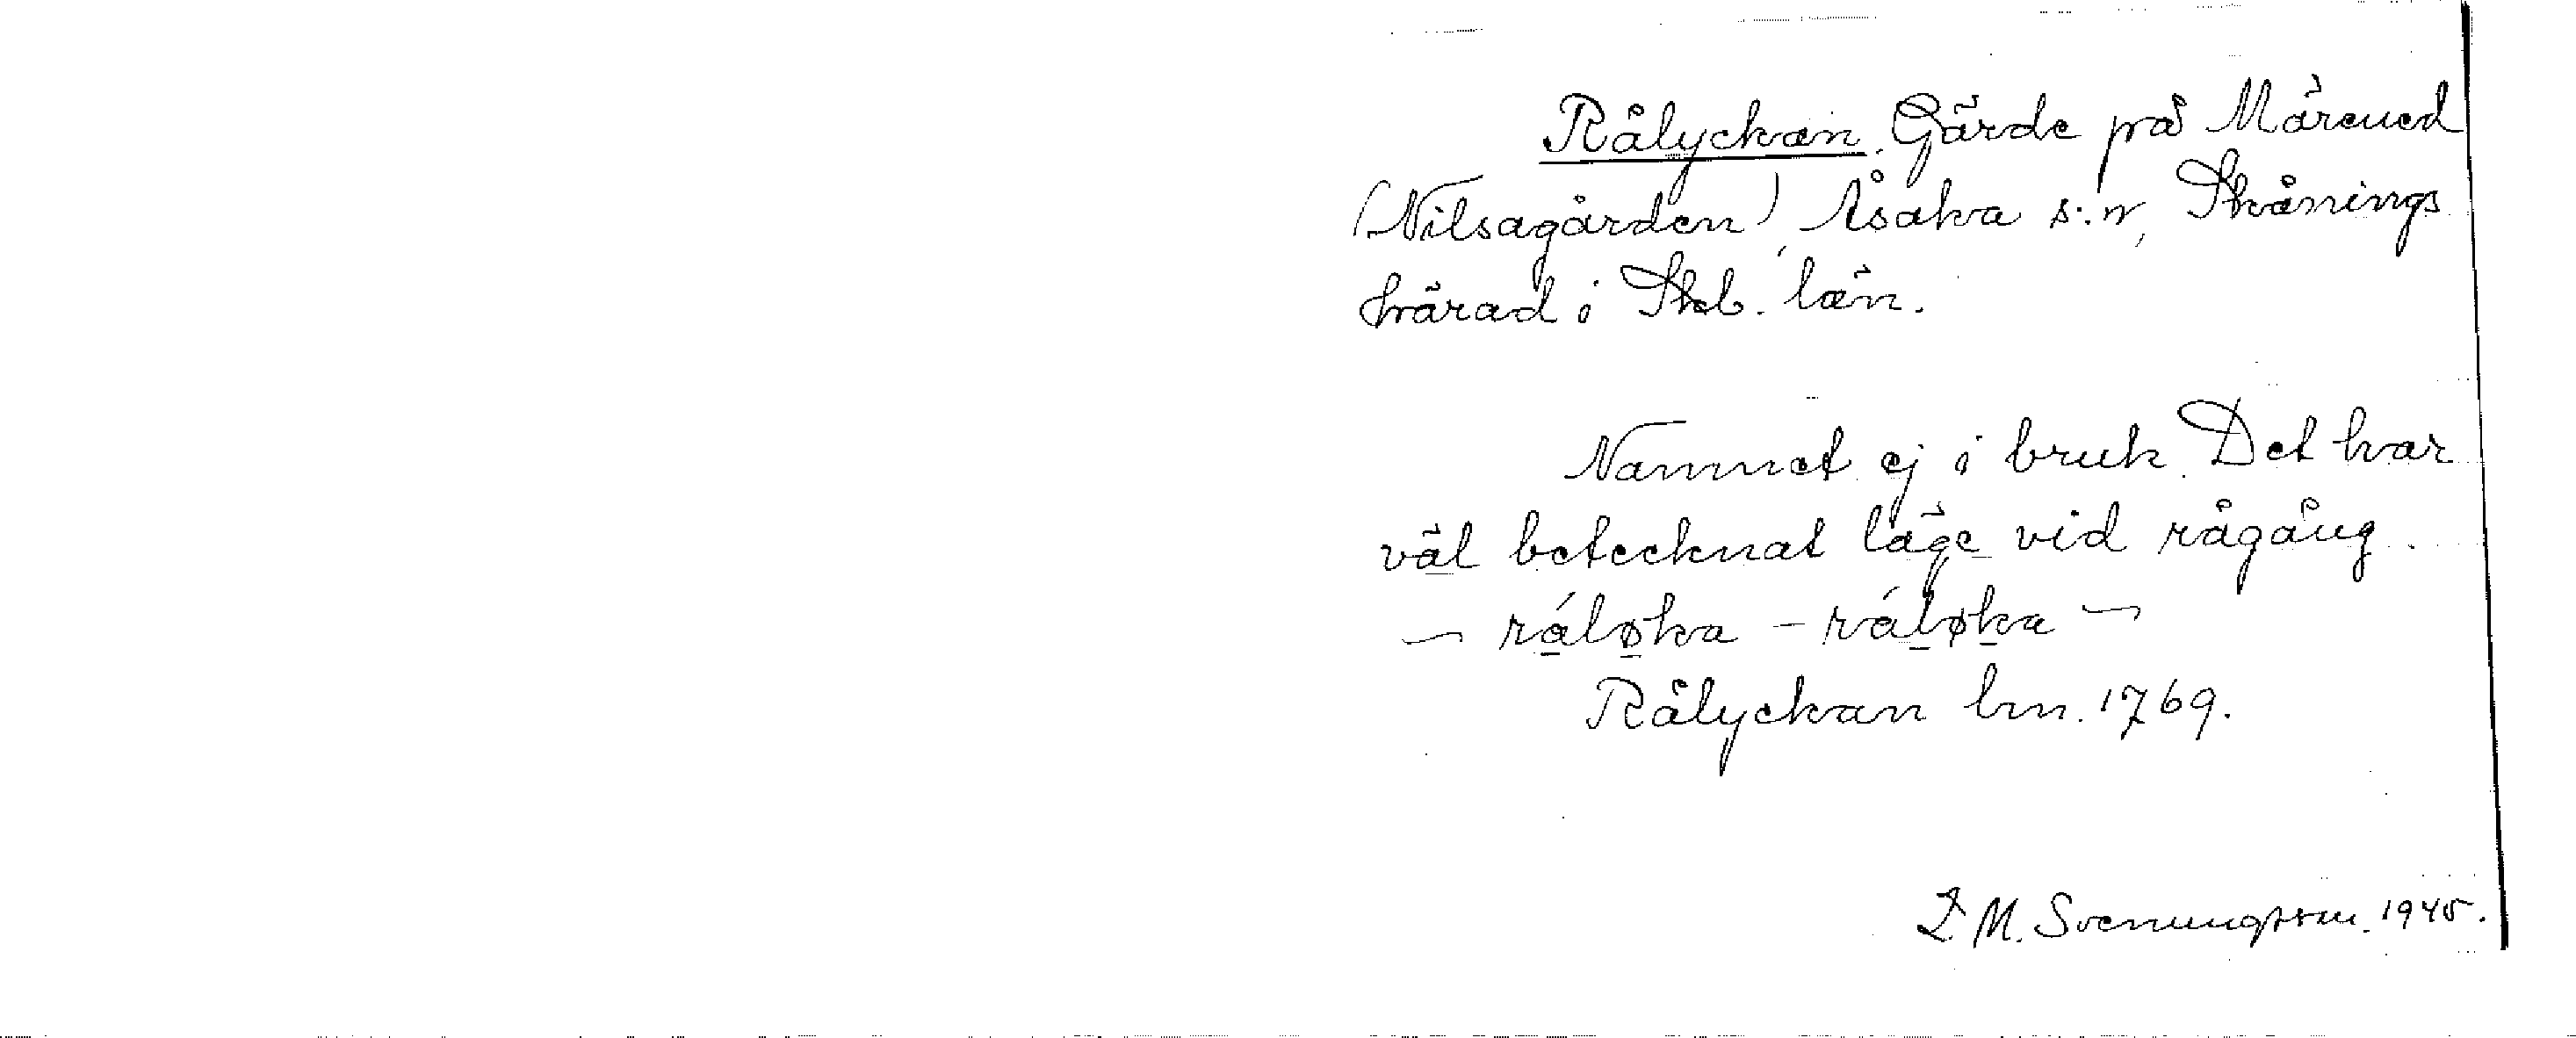 Rålyckan. Gärde på Mårened
(Nilsagården), Åsaka s:n, Skånings
härad i Skb. län.
Namnet ej i bruk. Det har
väl betecknat läge vid rågång.
– ráløka – ráløka –
Rålyckan lm. 1769.
L M. Svenungsson. 1945.